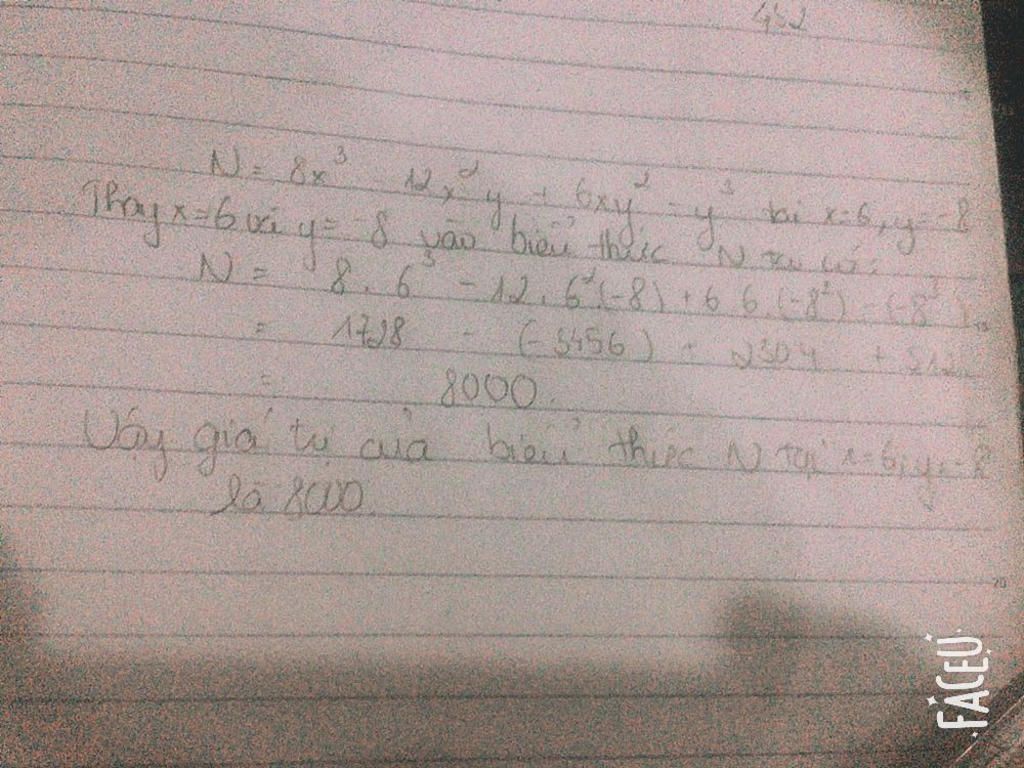 432
N = 8x³ - 12x²y + 6xy² - y³ tại x=6, y=-8
Thay x=6 và y=-8 vào biểu thức N ta có:
N = 8.6³ - 12.6².(-8) + 6.6.(-8²) - (-8³)
= 1728 - (-3456) + 2304 + 512
= 8000.
Vậy giá trị của biểu thức N tại x=6, y=-8
là 8000.
20
FACEU